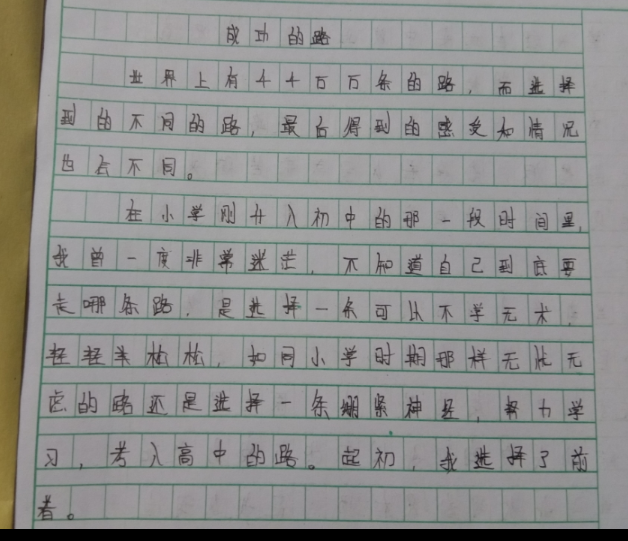 成功的路
世界上有千千万万条的路，而选择
到的不同的路，最后得到的感受和情况
也会不同。
在小学刚升入初中的那一段时间里，
我曾一度非常迷茫，不知道自己到底要
走哪条路，是选择一条可以不学无术，
轻轻松松，如同小学时期那样无忧无
虑的路还是选择一条绷紧神经，努力学
习，考入高中的路。起初，我选择了前
者。